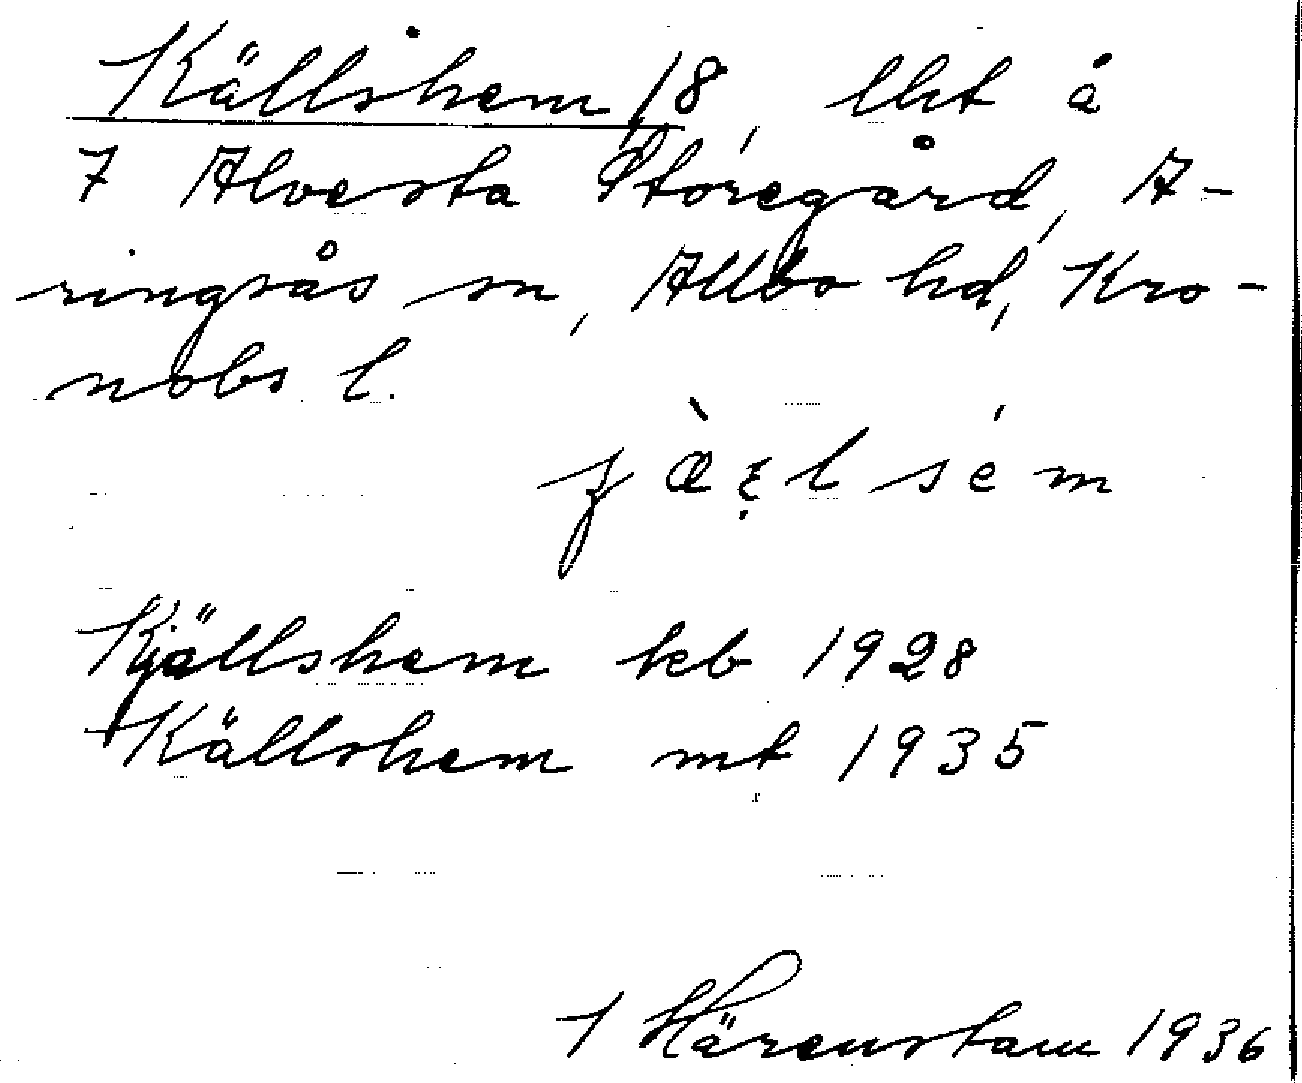 Källshem 18, lht å
7 Alvesta Storegård, A-
ringsås sn, Allbo hd, Kro-
nobs l.
Kjällshem kb 1928
Källshem mt 1935
Härenstam 1936